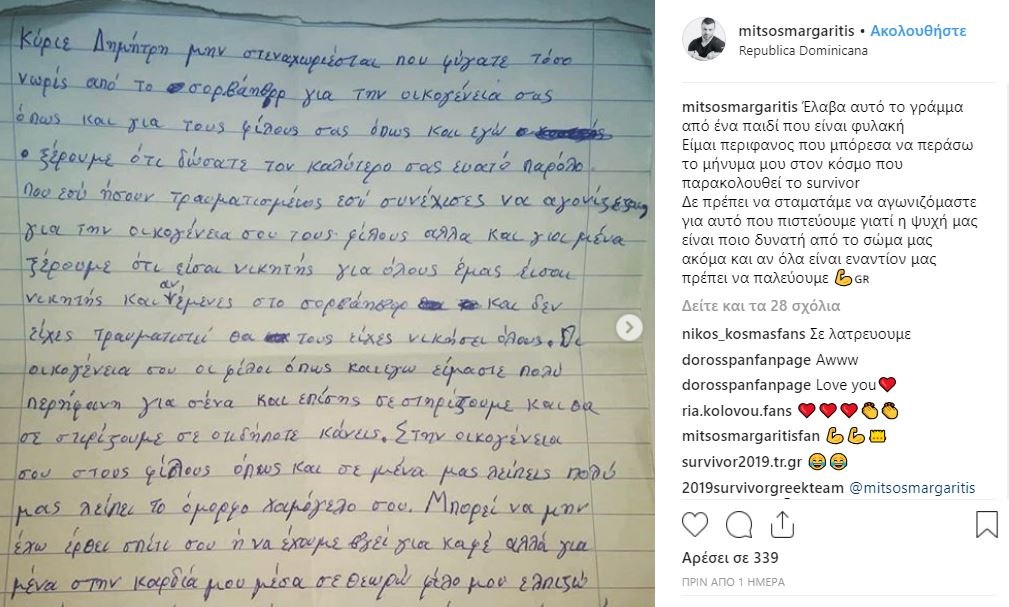 Κύριε Δημήτρη μην στεναχωριέσται που φύγατε τόσο
νωρίς από το σορβάηβορ για την οικογένεια σας
όπως και για τους φίλους σας όπως και εγώ
ξέρουμε ότι δώσατε τον καλύτερο σας ευατό παρόλο
που εσύ ήσουν τραυματισμένος εσύ συνέχισες να αγονίζεσαι
για την οικογένεια σου τους φίλους αλλα και για μένα
ξέρουμε ότι είσαι νικητής για όλους έμας είσαι
νικητής και αν έμενες στο σορβάηβορ και δεν
είχες τραυματιστεί θα τους είχες νικήσει όλους. Οι
οικογένεια σου οι φίλοι όπως και εγω είμαστε πολύ
περήφανη για σένα και επίσης σε στηρίζουμε και θα
σε στιρίζουμε σε οτιδήποτε κάνεις. Στην οικογένεια
σου στους φίλους όπως και σε μένα μας λείπεις πολύ
μας λείπει το όμορφο χαμόγελο σου. Μπορεί να μην
έχω έρθει σπίτι σου ή να έχουμε βγεί για καφέ αλλά για
μένα στην καρδιά μου μέσα σε θεωρώ φίλο μου ελπίζω
mitsosmargaritis • Ακολουθήστε
Republica Dominicana
mitsosmargaritis Έλαβα αυτό το γράμμα
από ένα παιδί που είναι φυλακή
Είμαι περιφανος που μπόρεσα να περάσω
το μήνυμα μου στον κόσμο που
παρακολουθεί το survivor
Δε πρέπει να σταματάμε να αγωνιζόμαστε
για αυτό που πιστεύουμε γιατί η ψυχή μας
είναι ποιο δυνατή από το σώμα μας
ακόμα και αν όλα είναι εναντίον μας
πρέπει να παλεύουμε 💪GR
Δείτε και τα 28 σχόλια
nikos_kosmasfans Σε λατρευουμε
dorosspanfanpage Awww
dorosspanfanpage Love you❤️
ria.kolovou.fans ❤️❤️❤️👏👏
mitsosmargaritisfan 💪💪
survivor2019.tr.gr 😂😂
2019survivorgreekteam @mitsosmargaritis
Αρέσει σε 339
ΠΡΙΝ ΑΠΌ 1 ΗΜΈΡΑ